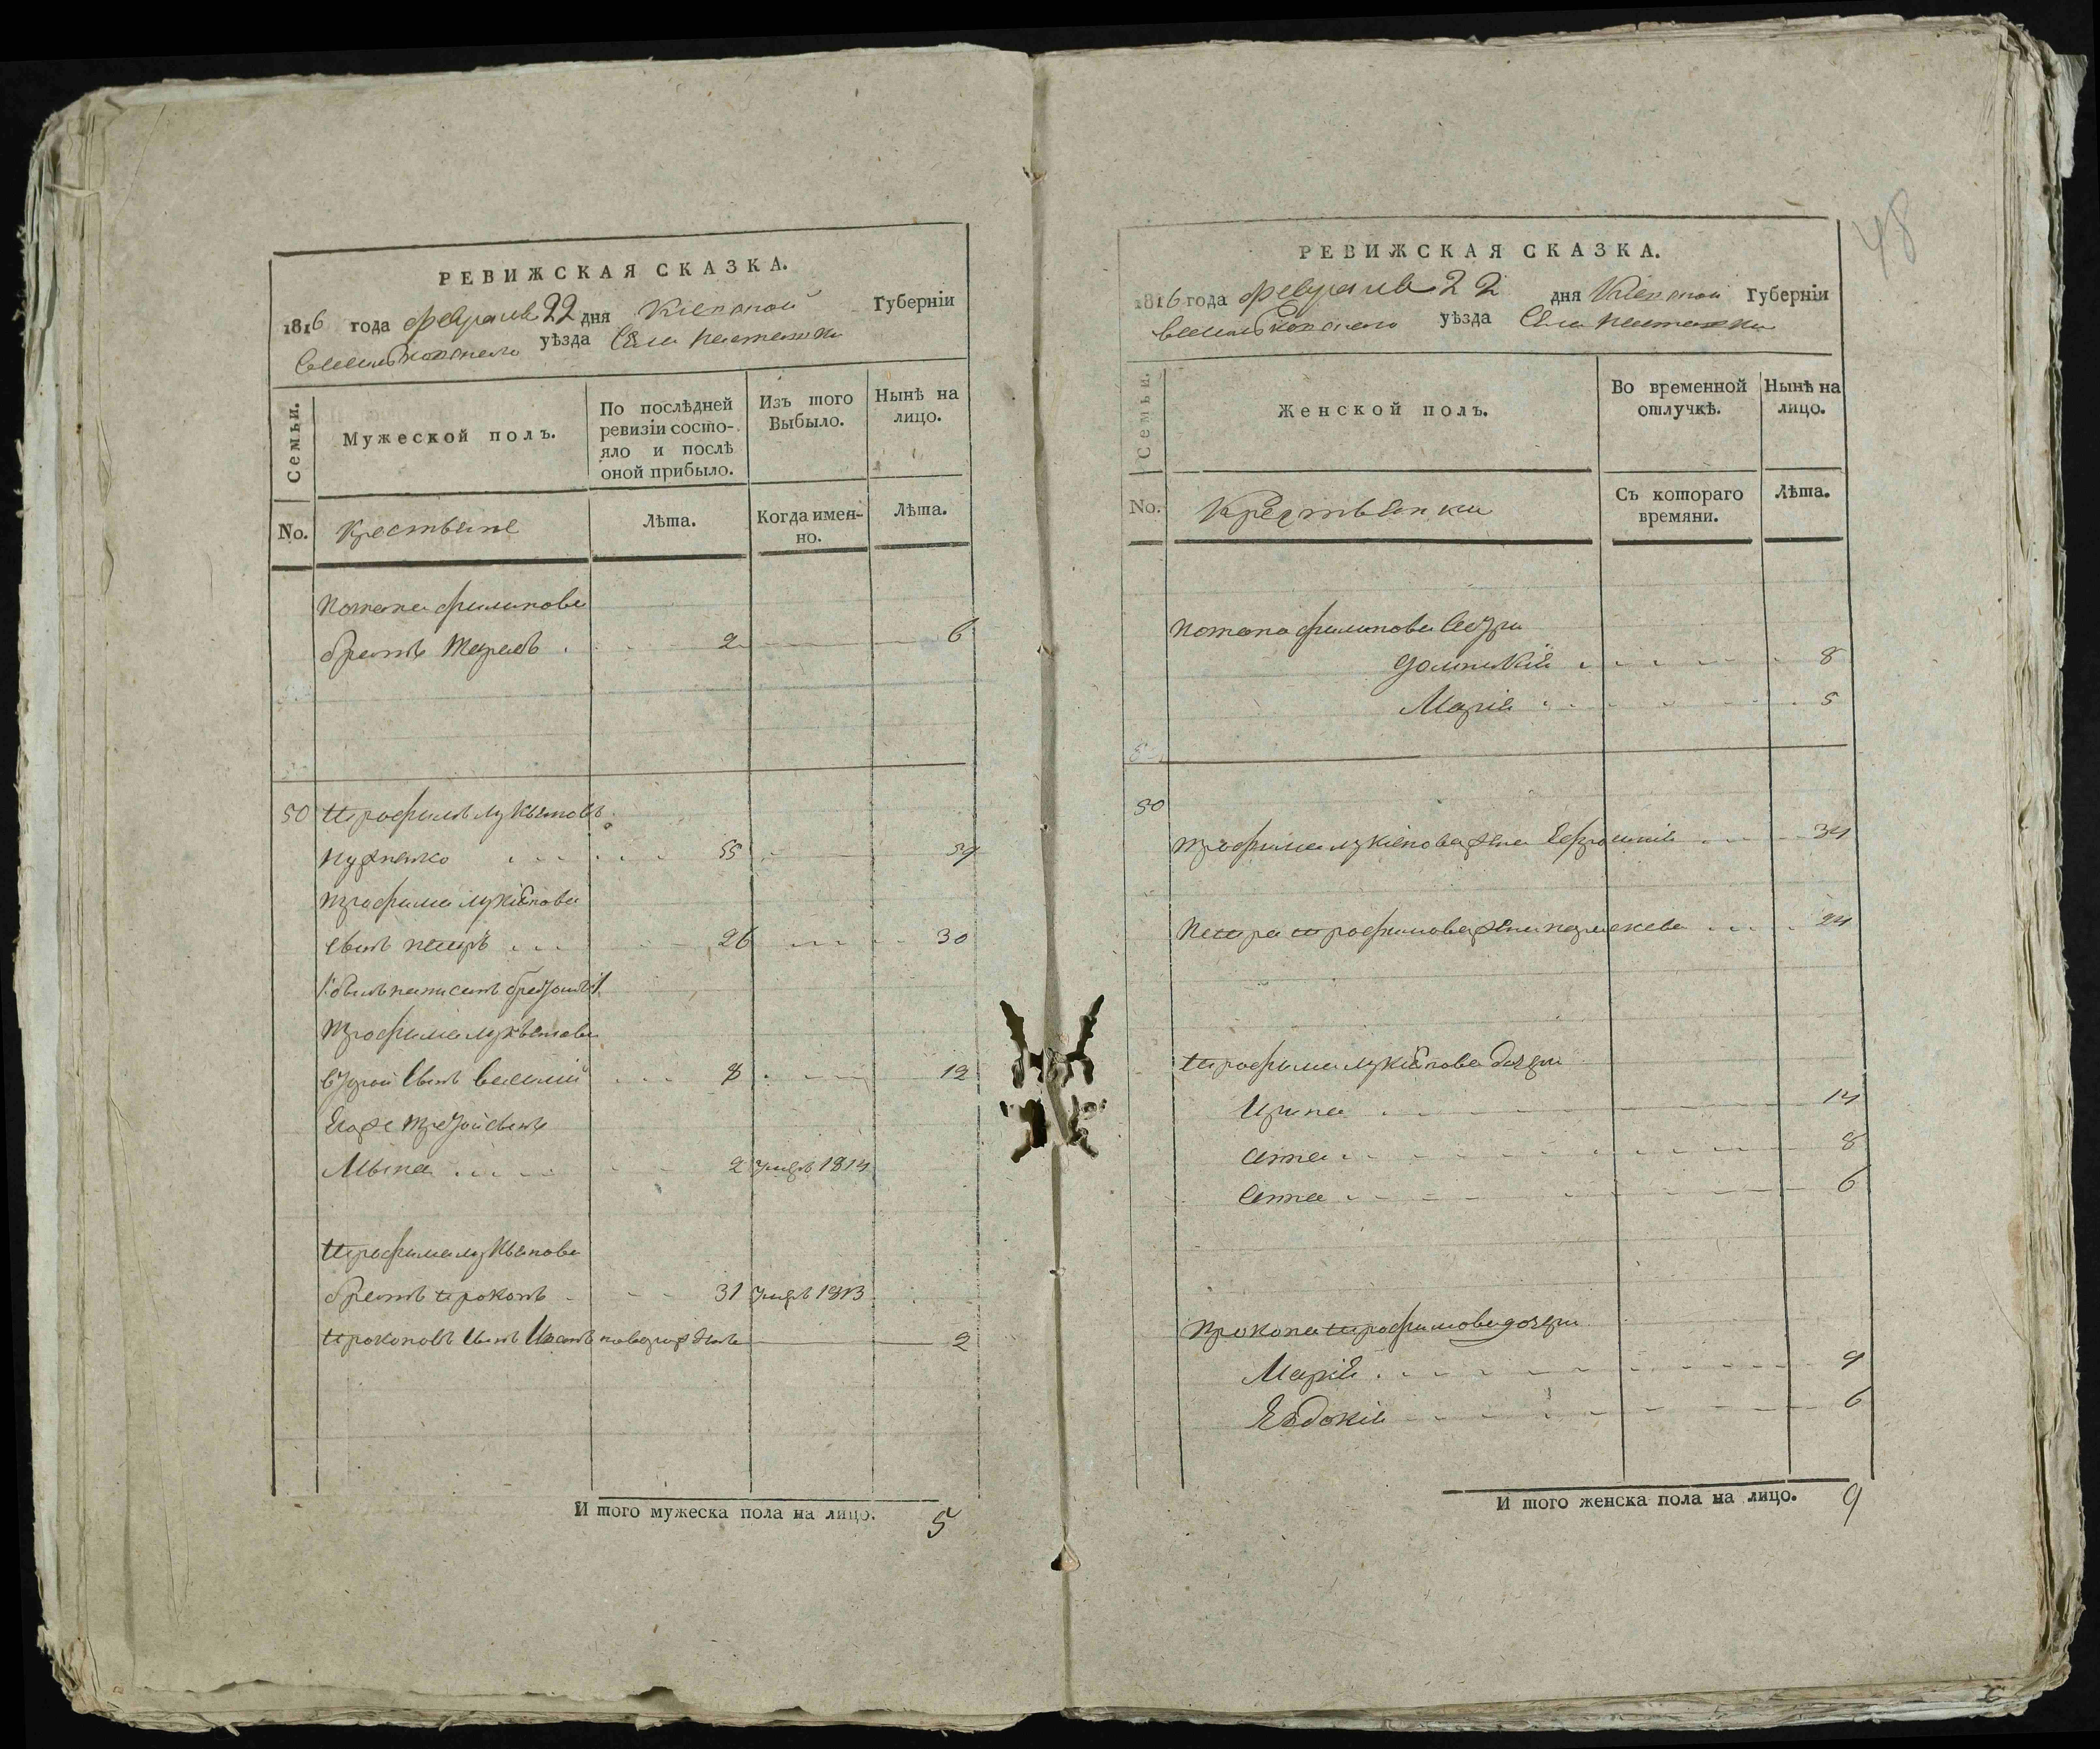 РЕВИЖСКАЯ СКАЗКА.
1816 года февраля 22 дня Киевской Губерніи
Васильковского уѣзда Села
Семьи.
Мужеской полъ.
По послѣдней ревизіи состояло и послѣ оной прибыло.
Изъ того Выбыло.
Нынѣ на лицо.
No.
крестьяне
Лѣта.
Когда именно.
Лѣта.
Потапа филипова
братъ Тарасъ 2 6
50 Трофимъ Лукьяновъ
55 59
Трофима лукіянова
сынъ петръ 26 30
Трофима лукьянова
другой сынъ василий 8 12
Егоже третій сынъ
2 умръ 1814
Трофима лукьянова
братъ прокопъ 31 умръ 1813
прокоповъ сынъ новорожденъ 2
И того мужеска пола на лицо. 5
48
РЕВИЖСКАЯ СКАЗКА.
1816 года февраля 22 дня Киевской Губерніи
Васильковского уѣзда Села
Семьи.
Женской полъ.
Во временной отлучкѣ.
Нынѣ на лицо.
No.
Крестьянки
Съ котораго времяни.
Лѣта.
Потапа филипова сестры
8
Марія 5
50
Трофима лукіянова жена Ефросинія 34
Петра трофимова жена параскева 24
Трофима лукіянова дочери
Ирина 14
анна 8
анна 6
Прокопа трофимова дочери
Марія 9
Евдокія 6
И того женска пола на лицо. 9